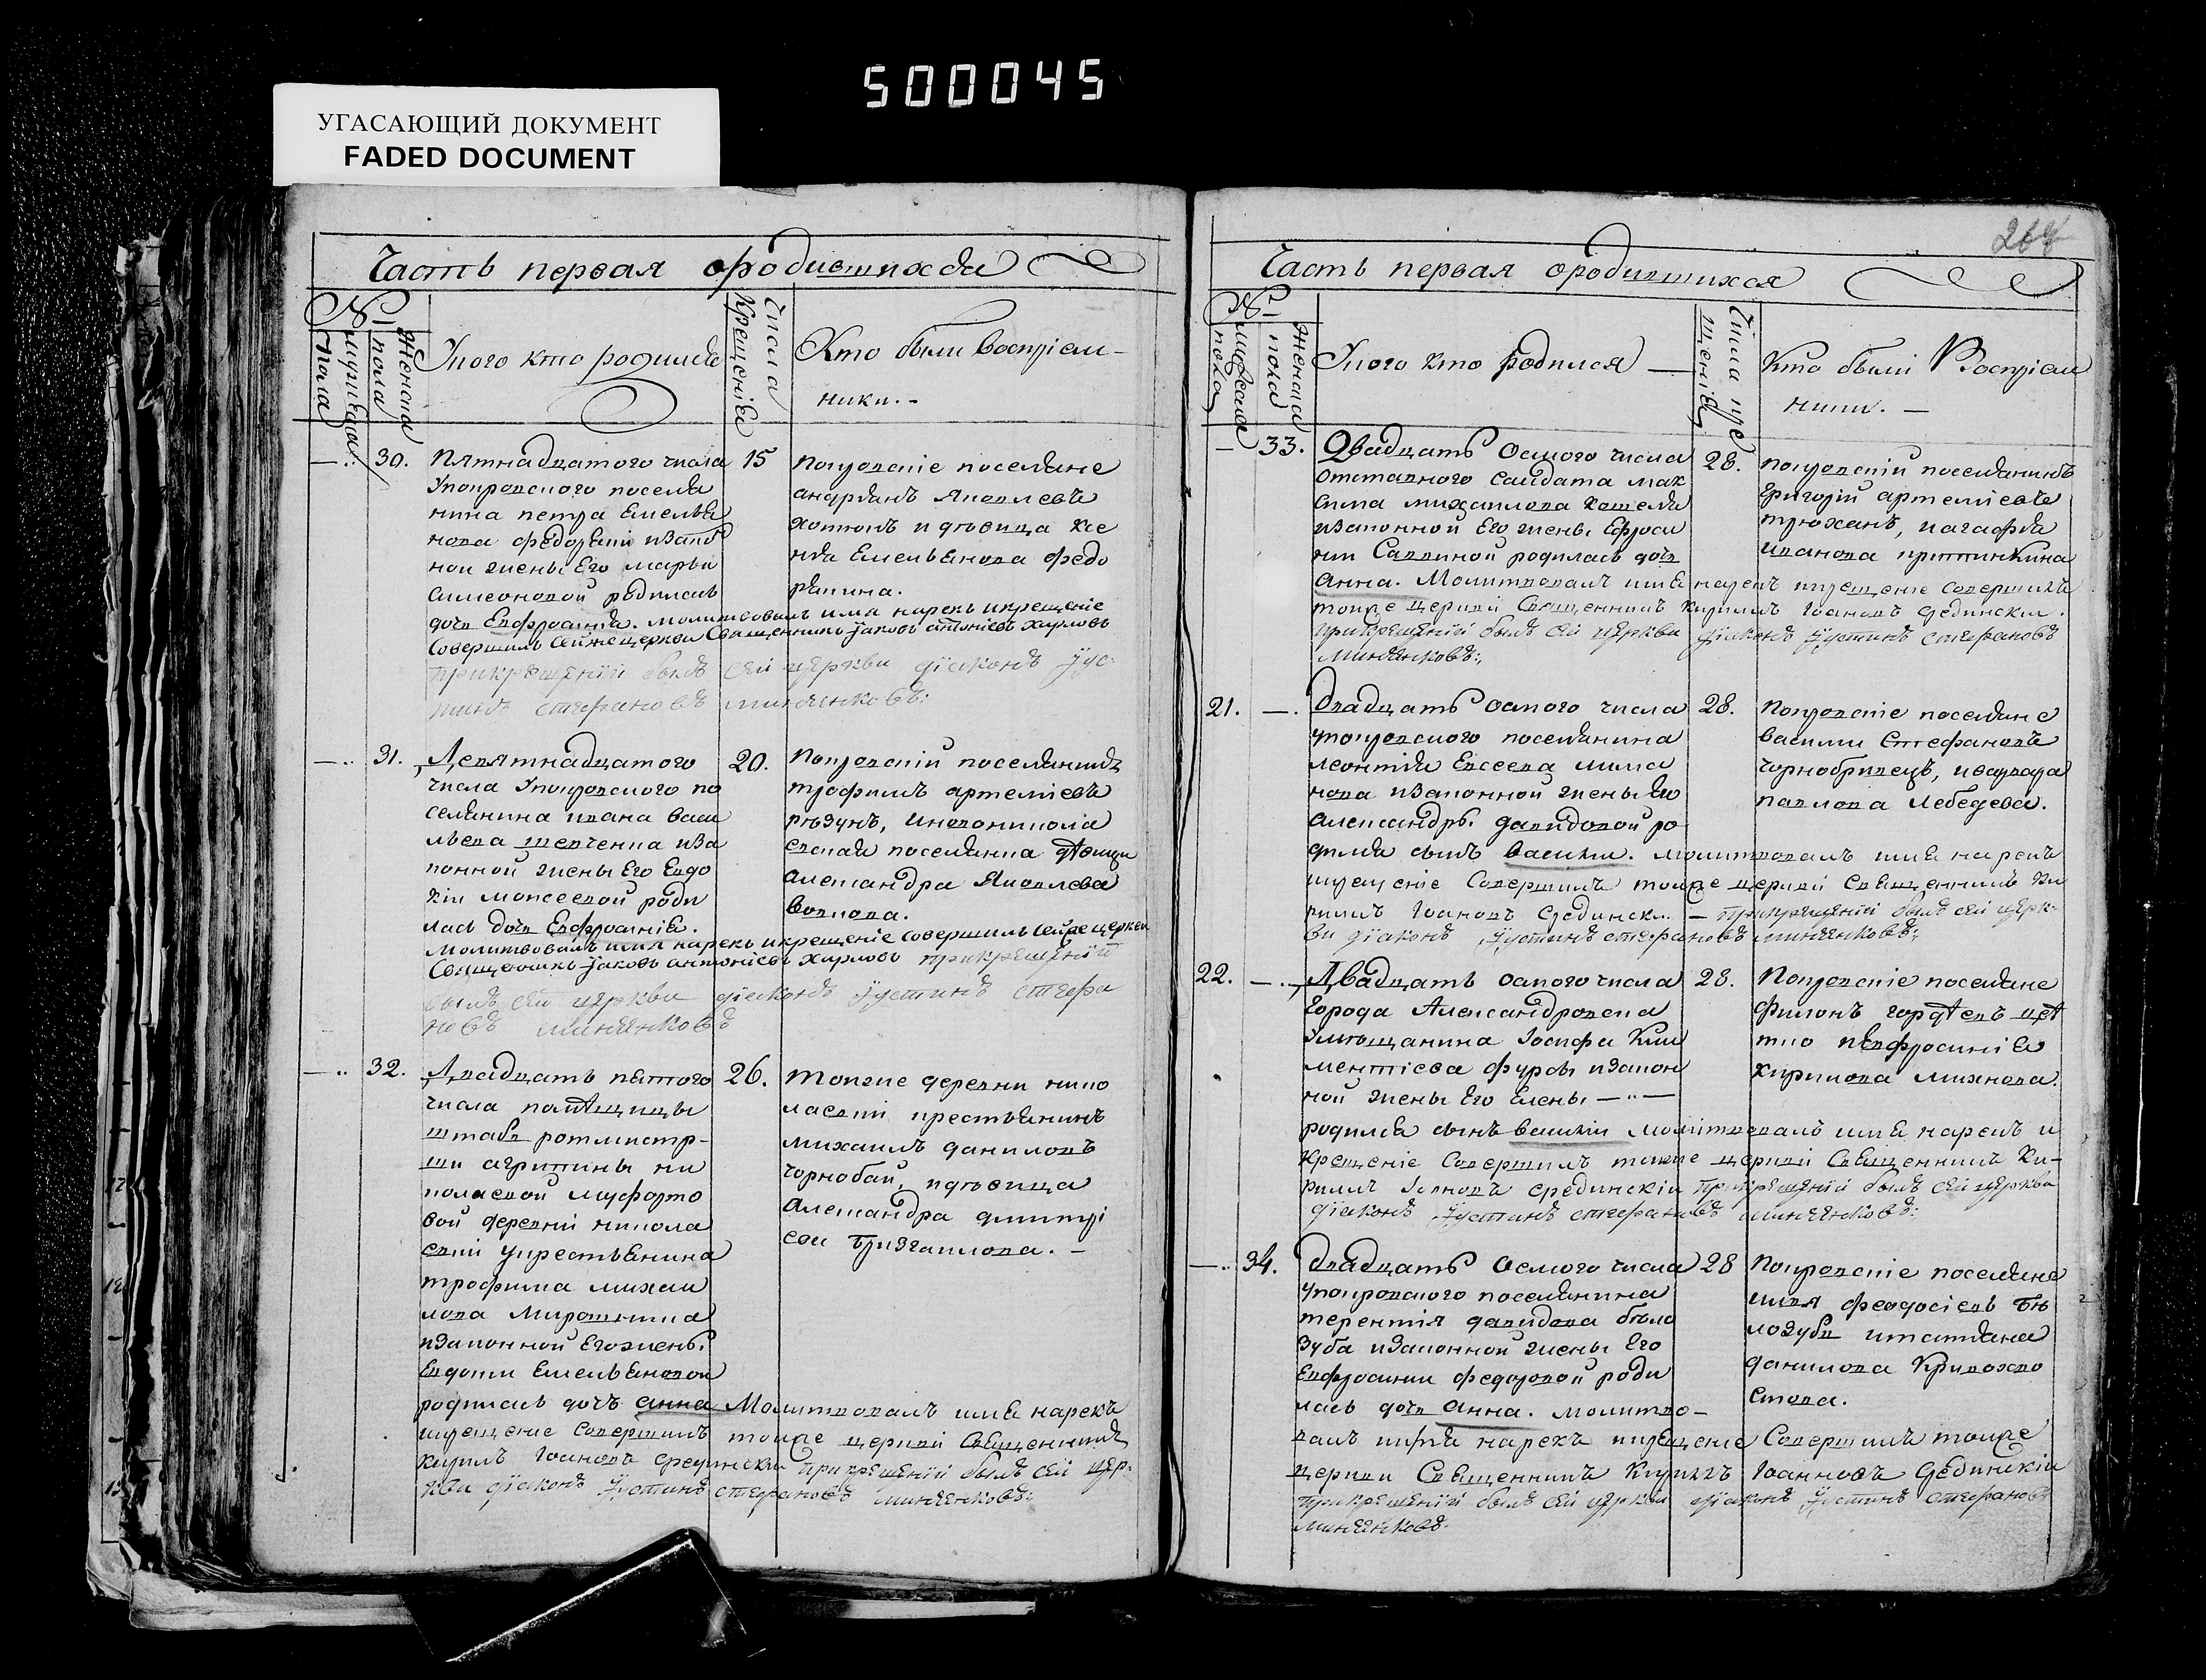 500045
УГАСАЮЩИЙ ДОКУМЕНТ
FADED DOCUMENT
Часть первая ородившихся
№
мужеска пола
женска пола
У кого кто родился
Числа Крещенія
Кто были воспріем-
ники.-
30.
Пятнадцатого числа
Упокровского поселя
нина петра Емелья
нова федоряки иззако
ной жены Его марьи
симеоновой родилась
дочь Евфросинія. молитвовалъ имя нарекъ икрещеніе
Совершилъ сейже церкви Священникъ Іаковъ антоніевъ Харловъ
прикрещеніи былъ сей церкви діаконъ Іус-
тинъ стефановъ миненковъ:
15
покровскіе поселяне
андріанъ Яковлевъ
хоптюкъ и дѣвица ксе
нія Емельянова федо
рякина.
31.
Девятнадцатого
числа Упокровского по
селянина ивана васи
льева шевченка изза
конной жены Его Евдо
кіи моисеевой роди
лась дочь Евфросинія.
молитвовалъ имя нарекъ икрещеніе совершилъ сейже церкви
Священникъ Іаковъ антоніевъ Харловъ прикрещеніи
былъ сей церкви діаконъ Іустинъ стефа
новъ миненковъ
20.
Покровскій поселянинъ
трофимъ артеміевъ
рѣзунъ, иновоникола
евская поселянка дѣвица
александра Яковлева
волкова.
32.
Двадцать пятого
числа помѣщицы
штабъ ротмистр-
ши агрипины ни
колаевой
вой деревни никола
евки укрестьянина
трофима михаи
лова Мирошника
иззаконной Его жены
Евдокіи Емельяновой
родилась дочь анна Молитвовалъ имя нарекъ
икрещеніе Совершилъ тоиже церкви Священникъ
кирилъ Іоановъ срединскій прикрещеніи былъ сей цер-
кви діаконъ Іустинъ стефановъ миненковъ:
26.
тоиже деревни нико
лаевки крестьянинъ
михаилъ даниловъ
чорнобай, идѣвица
александра дмитрі
ева
264
Часть первая ородившихся
№
мужеска пола
женска пола
У кого кто родился
Числа кре
щенія
Кто были Воспріем
ники. —
33.
Двадцать Осмого числа
отставного салдата мак
сима михаилова кошеля
иззаконной Его жены Ефроси
ніи Саввиной родилась дочь
анна. Молитвовалъ имя нарекъ икрещеніе совершилъ
тоиже церкви Священникъ кирилъ Іоановъ срединскій.
прикрещеніи былъ сей церкви діаконъ Іустинъ стефановъ
миненковъ:
28.
покровскій поселянинъ
григорій артеміевъ
трюханъ, иагафія
иванова
21.
Двадцать осмого числа
упокровского поселянина
леонтія Евсеева лима
нова иззаконной жены Его
александры давидовой ро
дился сынъ василій. молитвовалъ имя нарекъ
икрещеніе Совершилъ тоиже церкви Священникъ ки
рилъ Іоановъ Срединскій. — прикрещеніи былъ сей церк-
ви діаконъ Іустинъ стефановъ миненковъ:
28.
покровскіе поселяне
василій Стефановъ
чорнобривецъ, иварвара
павлова лебедева.
22.
Двадцать осмого числа
города Александровска
Умѣщанина Іосифа Кли
ментіева фуровы иззакон
ной жены Его Елены —"—
родился сынъ василій молитвовалъ имя нарекъ и
крещеніе Совершилъ тоиже церкви Священникъ Ки-
рилъ Іоановъ срединскій прикрещеніи былъ сей церкви
діаконъ Іустинъ стефановъ миненковъ:
28.
Покровскіе поселяне
филонъ гордѣевъ
иевфросинія
кирилова михнова.
34.
двадцать Осмого числа
упокровского поселянина
терентія давидова бѣло
зуба иззаконной жены Его
Евфросиніи федоровой роди
лась дочь анна. молитво-
валъ имя нарекъ икрещеніе Совершилъ тоиже
церкви Священникъ Кирилъ Іоанновъ Срединскій
прикрещеніи былъ сей церкви діаконъ Іустинъ стефановъ
миненковъ.
28
Покровскіе поселяне
илья феодосіевъ бѣ
лозубъ итатіяна
данилова Кривохво
стова.